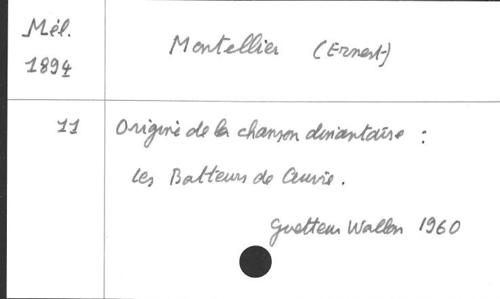 Mél. 1894
Montellier (Ernest)
11
Origine de la chanson dinantaise :
Les Batteurs de Cuivre.
Guetteur Wallon 1960